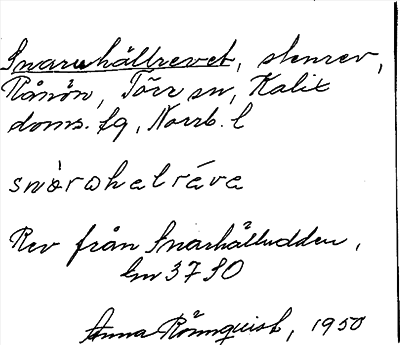 Snaruhällrevet, stenrev,
Rånön, Töre sn, Kalix
doms. fg, Norrb. l
snàrωhelráve
Rev från Snarhälludden,
Gn 37 SO
Anna Rönnquist, 1950